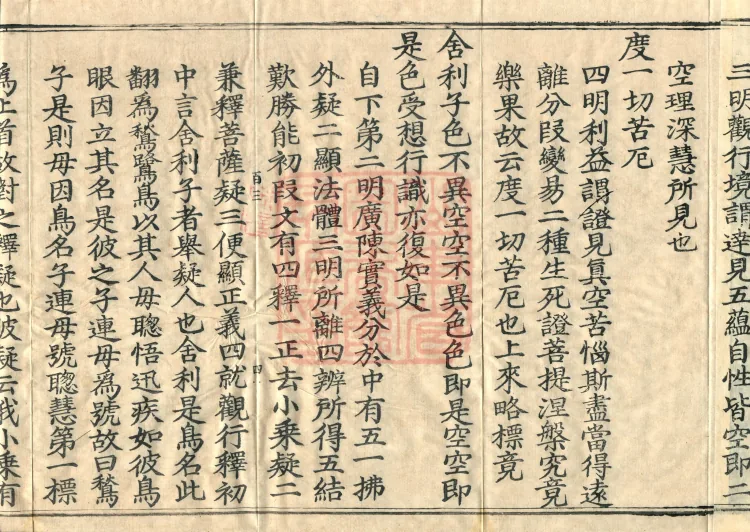 三明觀行境謂達見五蘊自性皆空即二
空理深慧所見也
度一切苦厄
四明利益謂證見真空苦惱斯盡當得遠
離分段變易二種生死證菩提涅槃究竟
樂果故云度一切苦厄也上來略標竟
舍利子色不異空空不異色色即是空空即
是色受想行識亦復如是
自下第二明廣陳實義分於中有五一拂
外疑二顯法體三明所離四辨所得五結
歎勝能初段文有四釋一正去小乘疑二
兼釋菩薩疑三便顯正義四就觀行釋初
中言舍利子者舉疑人也舍利是鳥名此
翻為鶖鷺鳥以其人母聰悟迅疾如彼鳥
眼因立其名是彼之子連母為號故曰鶖
子是則母因鳥名子連母號聰慧第一標
為上首故對之釋疑也彼疑云我小乘有